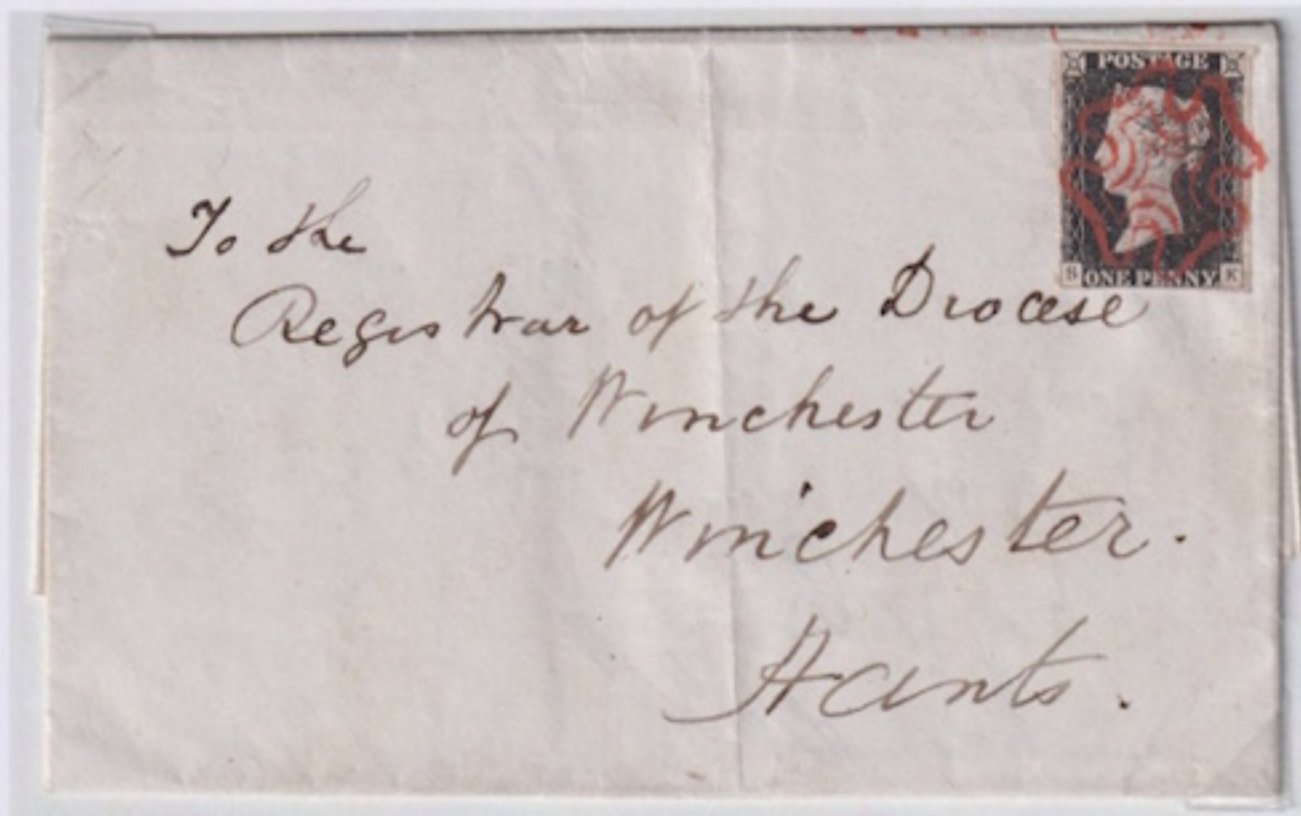 POSTAGE
S ONE PENNY K
To the
Registrar of the Diocese
of Winchester
Winchester.
Hants.